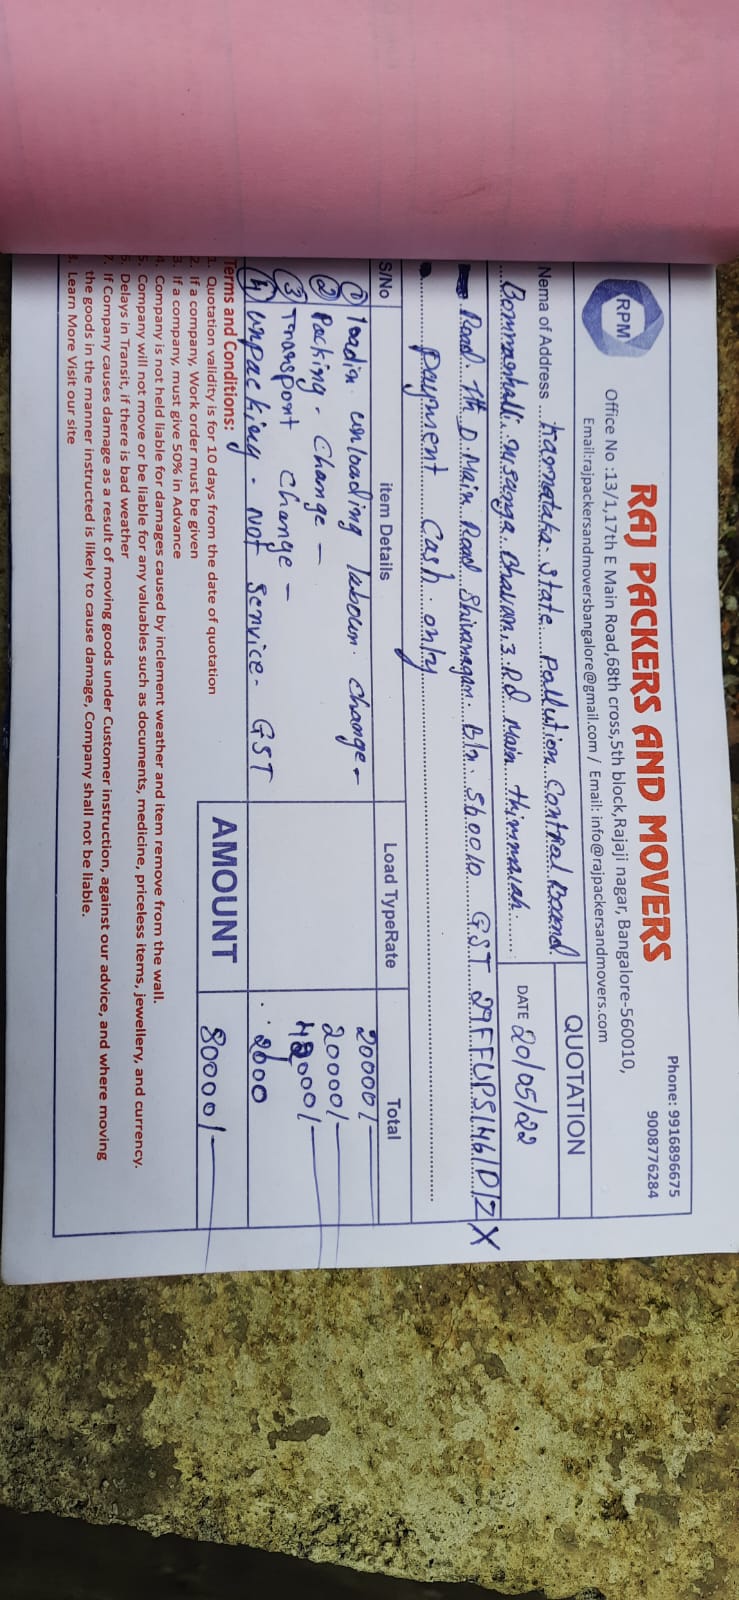 RAJ PACKERS AND MOVERS
Phone: 9916896675
9008776284
RPM
Office No :13/1,17th E Main Road,68th cross,5th block,Rajaji nagar, Bangalore-560010,
Email:rajpackersandmoversbangalore@gmail.com / Email: info@rajpackersandmovers.com
QUOTATION
Nema of Address Karnataka State Pollution Control Board
DATE 20/05/22
Bhavan, 3 Rd Main thimmaiah
Road. 7th D. Main Road Shivanagar. Bln. 560010 GST 29FFUPS1461D1ZX
payment cash only
S/No item Details Load TypeRate Total
① loadin unloading labour. change - 20000/-
② Packing - change - 20000/-
③ Transport change -
④ unpacking. Not Service - GST 2000
AMOUNT 80000/-
Terms and Conditions:
1. Quotation validity is for 10 days from the date of quotation
2. If a company, Work order must be given
3. If a company, must give 50% in Advance
4. Company is not held liable for damages caused by inclement weather and item remove from the wall.
5. Company will not move or be liable for any valuables such as documents, medicine, priceless items, jewellery, and currency.
6. Delays in Transit, if there is bad weather
7. If Company causes damage as a result of moving goods under Customer instruction, against our advice, and where moving
the goods in the manner instructed is likely to cause damage, Company shall not be liable.
Learn More Visit our site